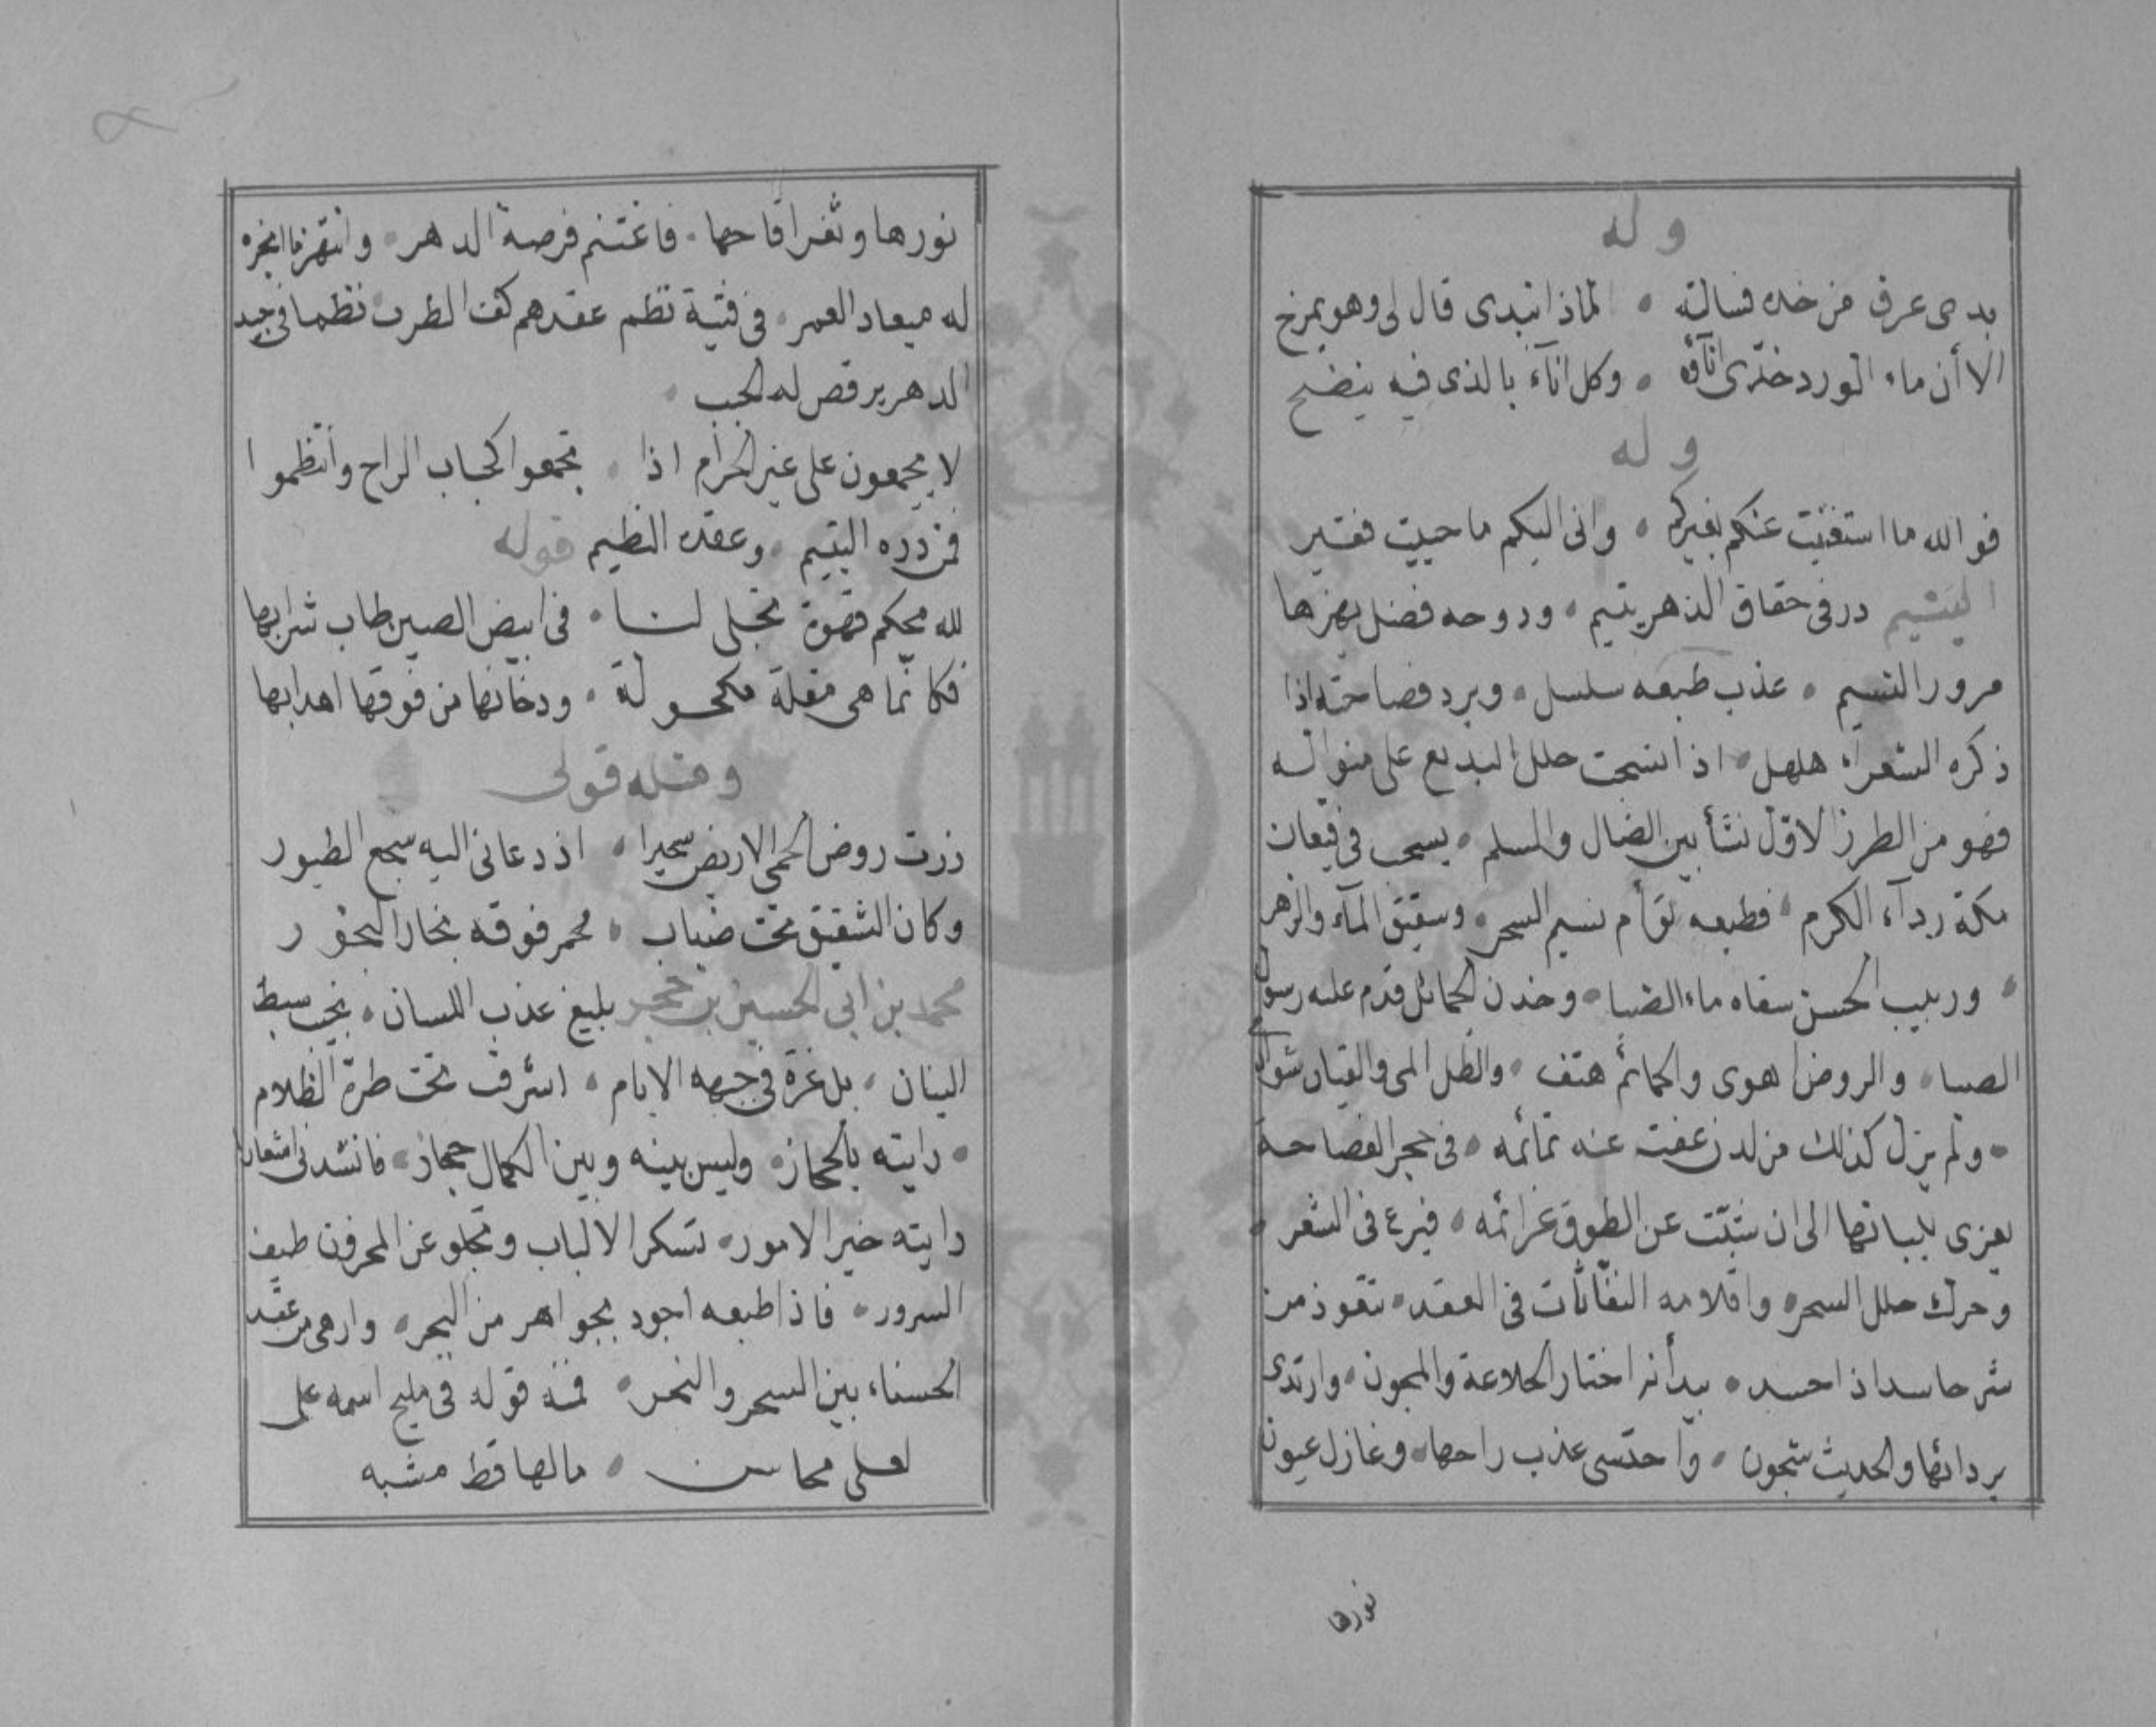 وله
بدى عرق من خده فسالته • لماذا تبدى قال لى وهو يمزح
الا أن ماء الورد خدّى اناؤه • وكل اناء بالذى فيه ينضح
وله
فوالله ما استغنيت عنكم بغيركم • وانى اليكم ما حييت فقير
اليتيم در فى حقاق الدهر يتيم • ودوحه فضل يهزها
مرور النسيم • عذب طبعه سلسل • وبرد فصاحته اذا
ذكره الشعراء هلهل • اذا نسجت حلل البديع على منواله
فهو من الطرز الاوّل نشأ بين الضال والسلم • يسحب فى قيعان
مكة رداء الكرم • فطبعه توأم نسيم السحر • وشقيق الماء والزهر
• وربيب الحسن سقاه ماء الصبا • وخدن الخمائل قدم عليه رسول
الصبا • والروض اهوى والحمائم هتف • والظل المى والقيان
• ولم يزل كذلك من لدن عقت عنه تمائمه • فى حجر الفصاحة
يغزى بلبانها الى ان شبّت عن الطوق عزائمه • فبرع فى الشعر •
وحرك حلل السحر • واقلامه النفّاثات فى العقد • تتعوذ من
شر حاسد اذا حسد • بيد أنه اختار الخلاعة والمجون • وارتدى
بردائها والحديث شجون • واحتسى عذب راحها • وغازل عيون
نورها
نورها وثغر اقاحها • فاغتنم فرصة الدهر • وانتهز ما انجزه
له ميعاد العمر • فى فتية نظم عقدهم كف الطرب نظما فى جيد
الدهر يرقص له الحبب •
لا يجمعون على غير الحرام اذا • تجمعوا كحباب الراح وانتظموا
فمن دره اليتيم • وعقده النظيم قوله
لله محكم قهوة تجلى لنا • فى ابيض الصين طاب شرابها
فكانّما هى مقلة مكحولة • ودخانها من فوقها اهدابها
ومثله قولى
زرت روض الحمى الاريض سحيرا • اذ دعانى اليه سجع الطيور
وكان الشقيق تحت ضباب • مجمر فوقه بخار البخور
محمد بن ابى الحسين بن بليغ عذب اللسان • نجيب سبط
البنان • بل غرة فى جبهه الايام • اشرقت تحت طرة الظلام
• رايته بالحجاز • وليس بينه وبين الكمال حجاز • فانشدنى اشعارا
رايته خير الامور • تسكر الالباب وتجلو عن المحزون طيف
السرور • فاذا طبعه اجود بجواهر من البحر • وازهى من عقد
الحسناء بين السحر والنحر • فمنه قوله فى مليح اسمه على
لعلى محاسن • مالها قط مشبه